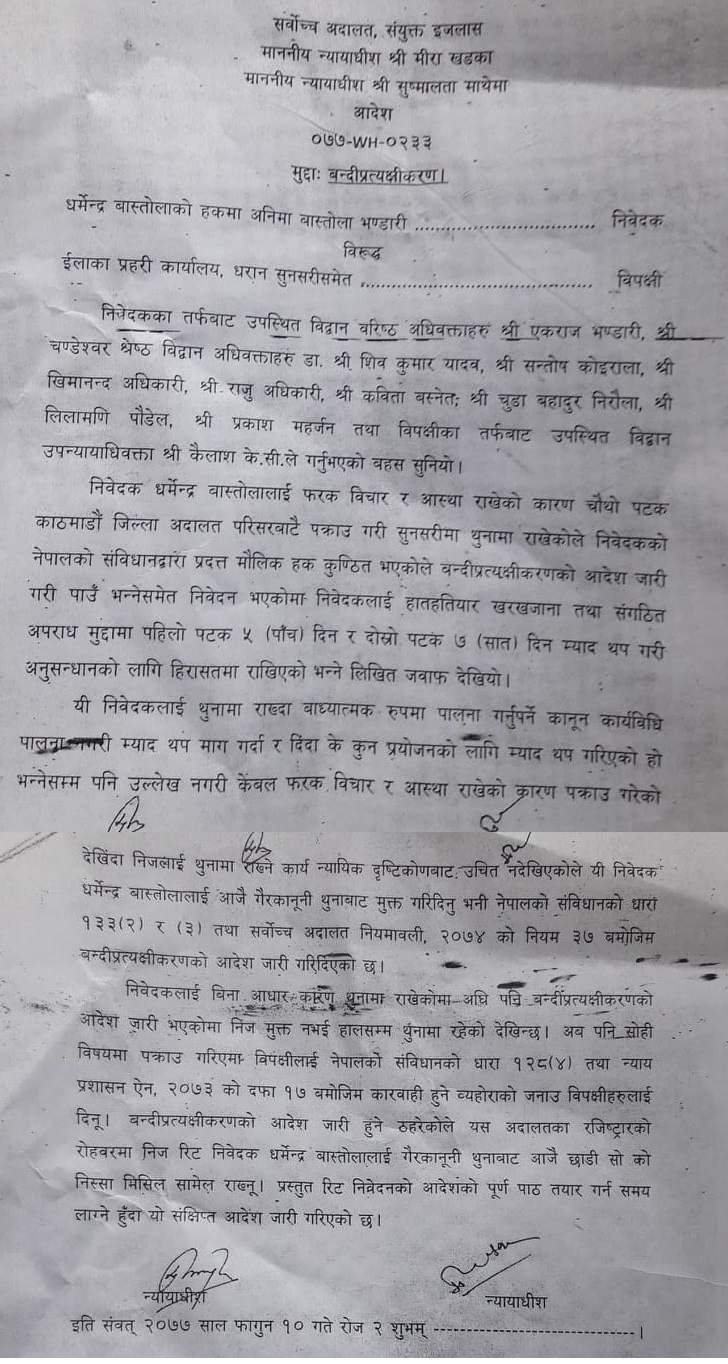 सर्वोच्च अदालत, संयुक्त इजलास
माननीय न्यायाधीश श्री मीरा खडका
माननीय न्यायाधीश श्री सुष्मालता माथेमा
आदेश
०७७-WH-०२३३
मुद्दाः बन्दीप्रत्यक्षीकरण।
धर्मेन्द्र बास्तोलाको हकमा अनिमा वास्तोला भण्डारी ........................ निवेदक
विरूद्ध
ईलाका प्रहरी कार्यालय, धरान सुनसरीसमेत ........................ विपक्षी
निवेदकका तर्फबाट उपस्थित विद्वान वरिष्ठ अधिवक्ताहरु श्री एकराज भण्डारी, श्री
चण्डेश्वर श्रेष्ठ विद्वान अधिवक्ताहरु डा. श्री शिव कुमार यादव, श्री सन्तोष कोइराला, श्री
खिमानन्द अधिकारी, श्री राजु अधिकारी, श्री कविता बस्नेत; श्री चुडा बहादुर निरौला, श्री
लिलामणि पौडेल, श्री प्रकाश महर्जन तथा विपक्षीका तर्फबाट उपस्थित विद्वान
उपन्यायाधिवक्ता श्री कैलाश के.सी.ले गर्नुभएको वहस सुनियो।
निवेदक धर्मेन्द्र वास्तोलालाई फरक विचार र आस्था राखेको कारण चौथो पटक
काठमाडौं जिल्ला अदालत परिसरबाटै पक्राउ गरी सुनसरीमा थुनामा राखेकोले निवेदकको
नेपालको संविधानद्वारा प्रदत्त मौलिक हक कुण्ठित भएकोले वन्दीप्रत्यक्षीकरणको आदेश जारी
गरी पाउँ भन्नेसमेत निवेदन भएकोमा निवेदकलाई हातहतियार खरखजाना तथा संगठित
अपराध मुद्दामा पहिलो पटक ५ (पाँच) दिन र दोस्रो पटक ७ (सात) दिन म्याद थप गरी
अनुसन्धानको लागि हिरासतमा राखिएको भन्ने लिखित जवाफ देखियो।
यी निवेदकलाई थुनामा राख्दा वाध्यात्मक रुपमा पालना गर्नुपर्ने कानून कार्यविधि
पालना नगरी म्याद थप माग गर्दा र दिंदा के कुन प्रयोजनको लागि म्याद थप गरिएको हो
भन्नेसम्म पनि उल्लेख नगरी केवल फरक विचार र आस्था राखेको कारण पक्राउ गरेको
देखिंदा निजलाई थुनामा राख्ने कार्य न्यायिक दृष्टिकोणबाट उचित नदेखिएकोले यी निवेदक
धर्मेन्द्र वास्तोलालाई आजै गैरकानूनी थुनाबाट मुक्त गरिदिनु भनी नेपालको संविधानको धारा
१३३(२) र (३) तथा सर्वोच्च अदालत नियमावली, २०७४ को नियम ३७ बमोजिम
बन्दीप्रत्यक्षीकरणको आदेश जारी गरिदिएको छ।
निवेदकलाई बिना आधार कारण थुनामा राखेकोमा अघि पनि बन्दीप्रत्यक्षीकरणको
आदेश जारी भएकोमा निज मुक्त नभई हालसम्म थुनामा रहेको देखिन्छ। अब पनि सोही
विषयमा पक्राउ गरिएमा विपक्षीलाई नेपालको संविधानको धारा १२८(४) तथा न्याय
प्रशासन ऐन, २०७३ को दफा १७ बमोजिम कारवाही हुने व्यहोराको जनाउ विपक्षीहरुलाई
दिनू। बन्दीप्रत्यक्षीकरणको आदेश जारी हुने ठहरेकोले यस अदालतका रजिष्ट्रारको
रोहवरमा निज रिट निवेदक धर्मेन्द्र वास्तोलालाई गैरकानूनी थुनाबाट आजै छाडी सो को
निस्सा मिसिल सामेल राख्नू। प्रस्तुत रिट निवेदनको आदेशको पूर्ण पाठ तयार गर्न समय
लाग्ने हुँदा यो संक्षिप्त आदेश जारी गरिएको छ।
न्यायाधीश न्यायाधीश
इति संवत् २०७७ साल फागुन १० गते रोज २ शुभम् ------------------------।